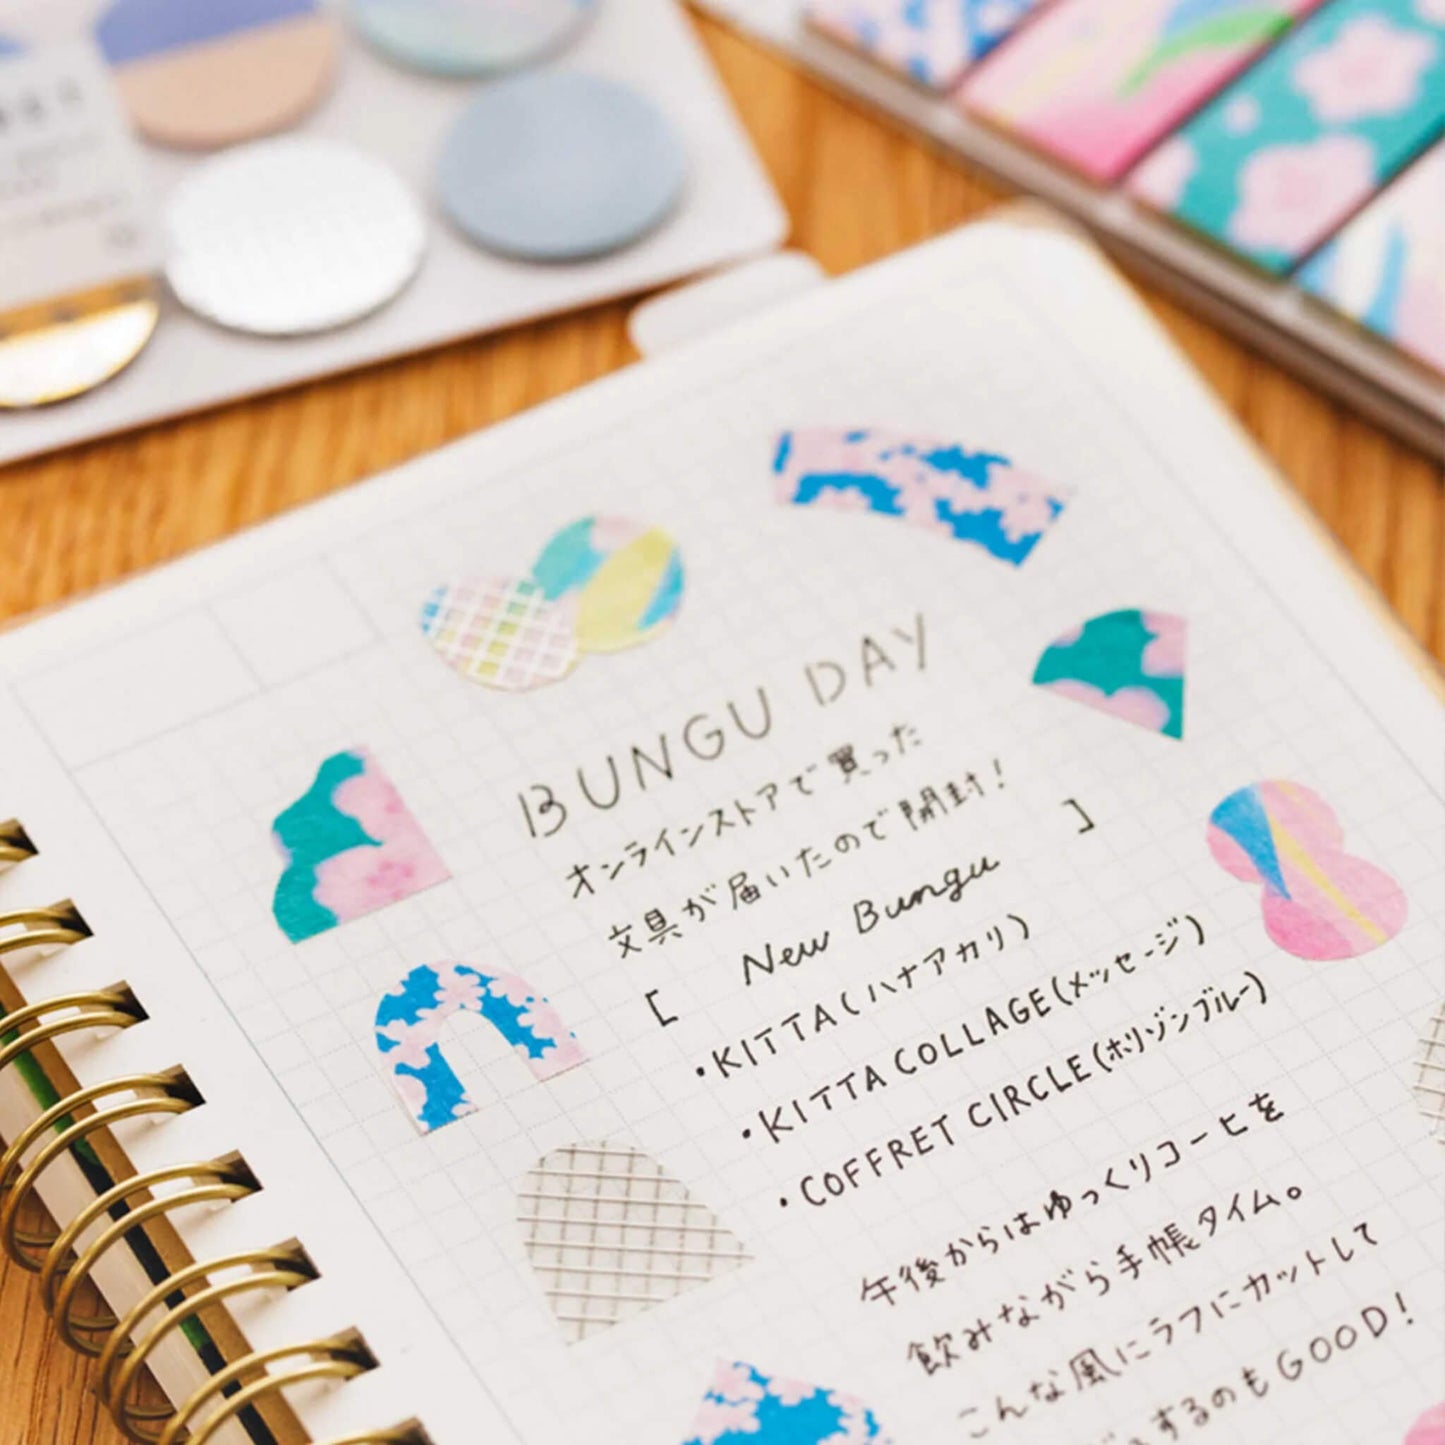 BUNGU DAY
オンラインストアで買った
文具が届いたので開封!
[ New Bungu ]
・KITTA(ハナアカリ)
・KITTA COLLAGE(メッセージ)
・COFFRET CIRCLE(ホリゾンブルー)
午後からはゆっくりコーヒを
飲みながら手帳タイム。
こんな風にラフにカットして
するのもGOOD!